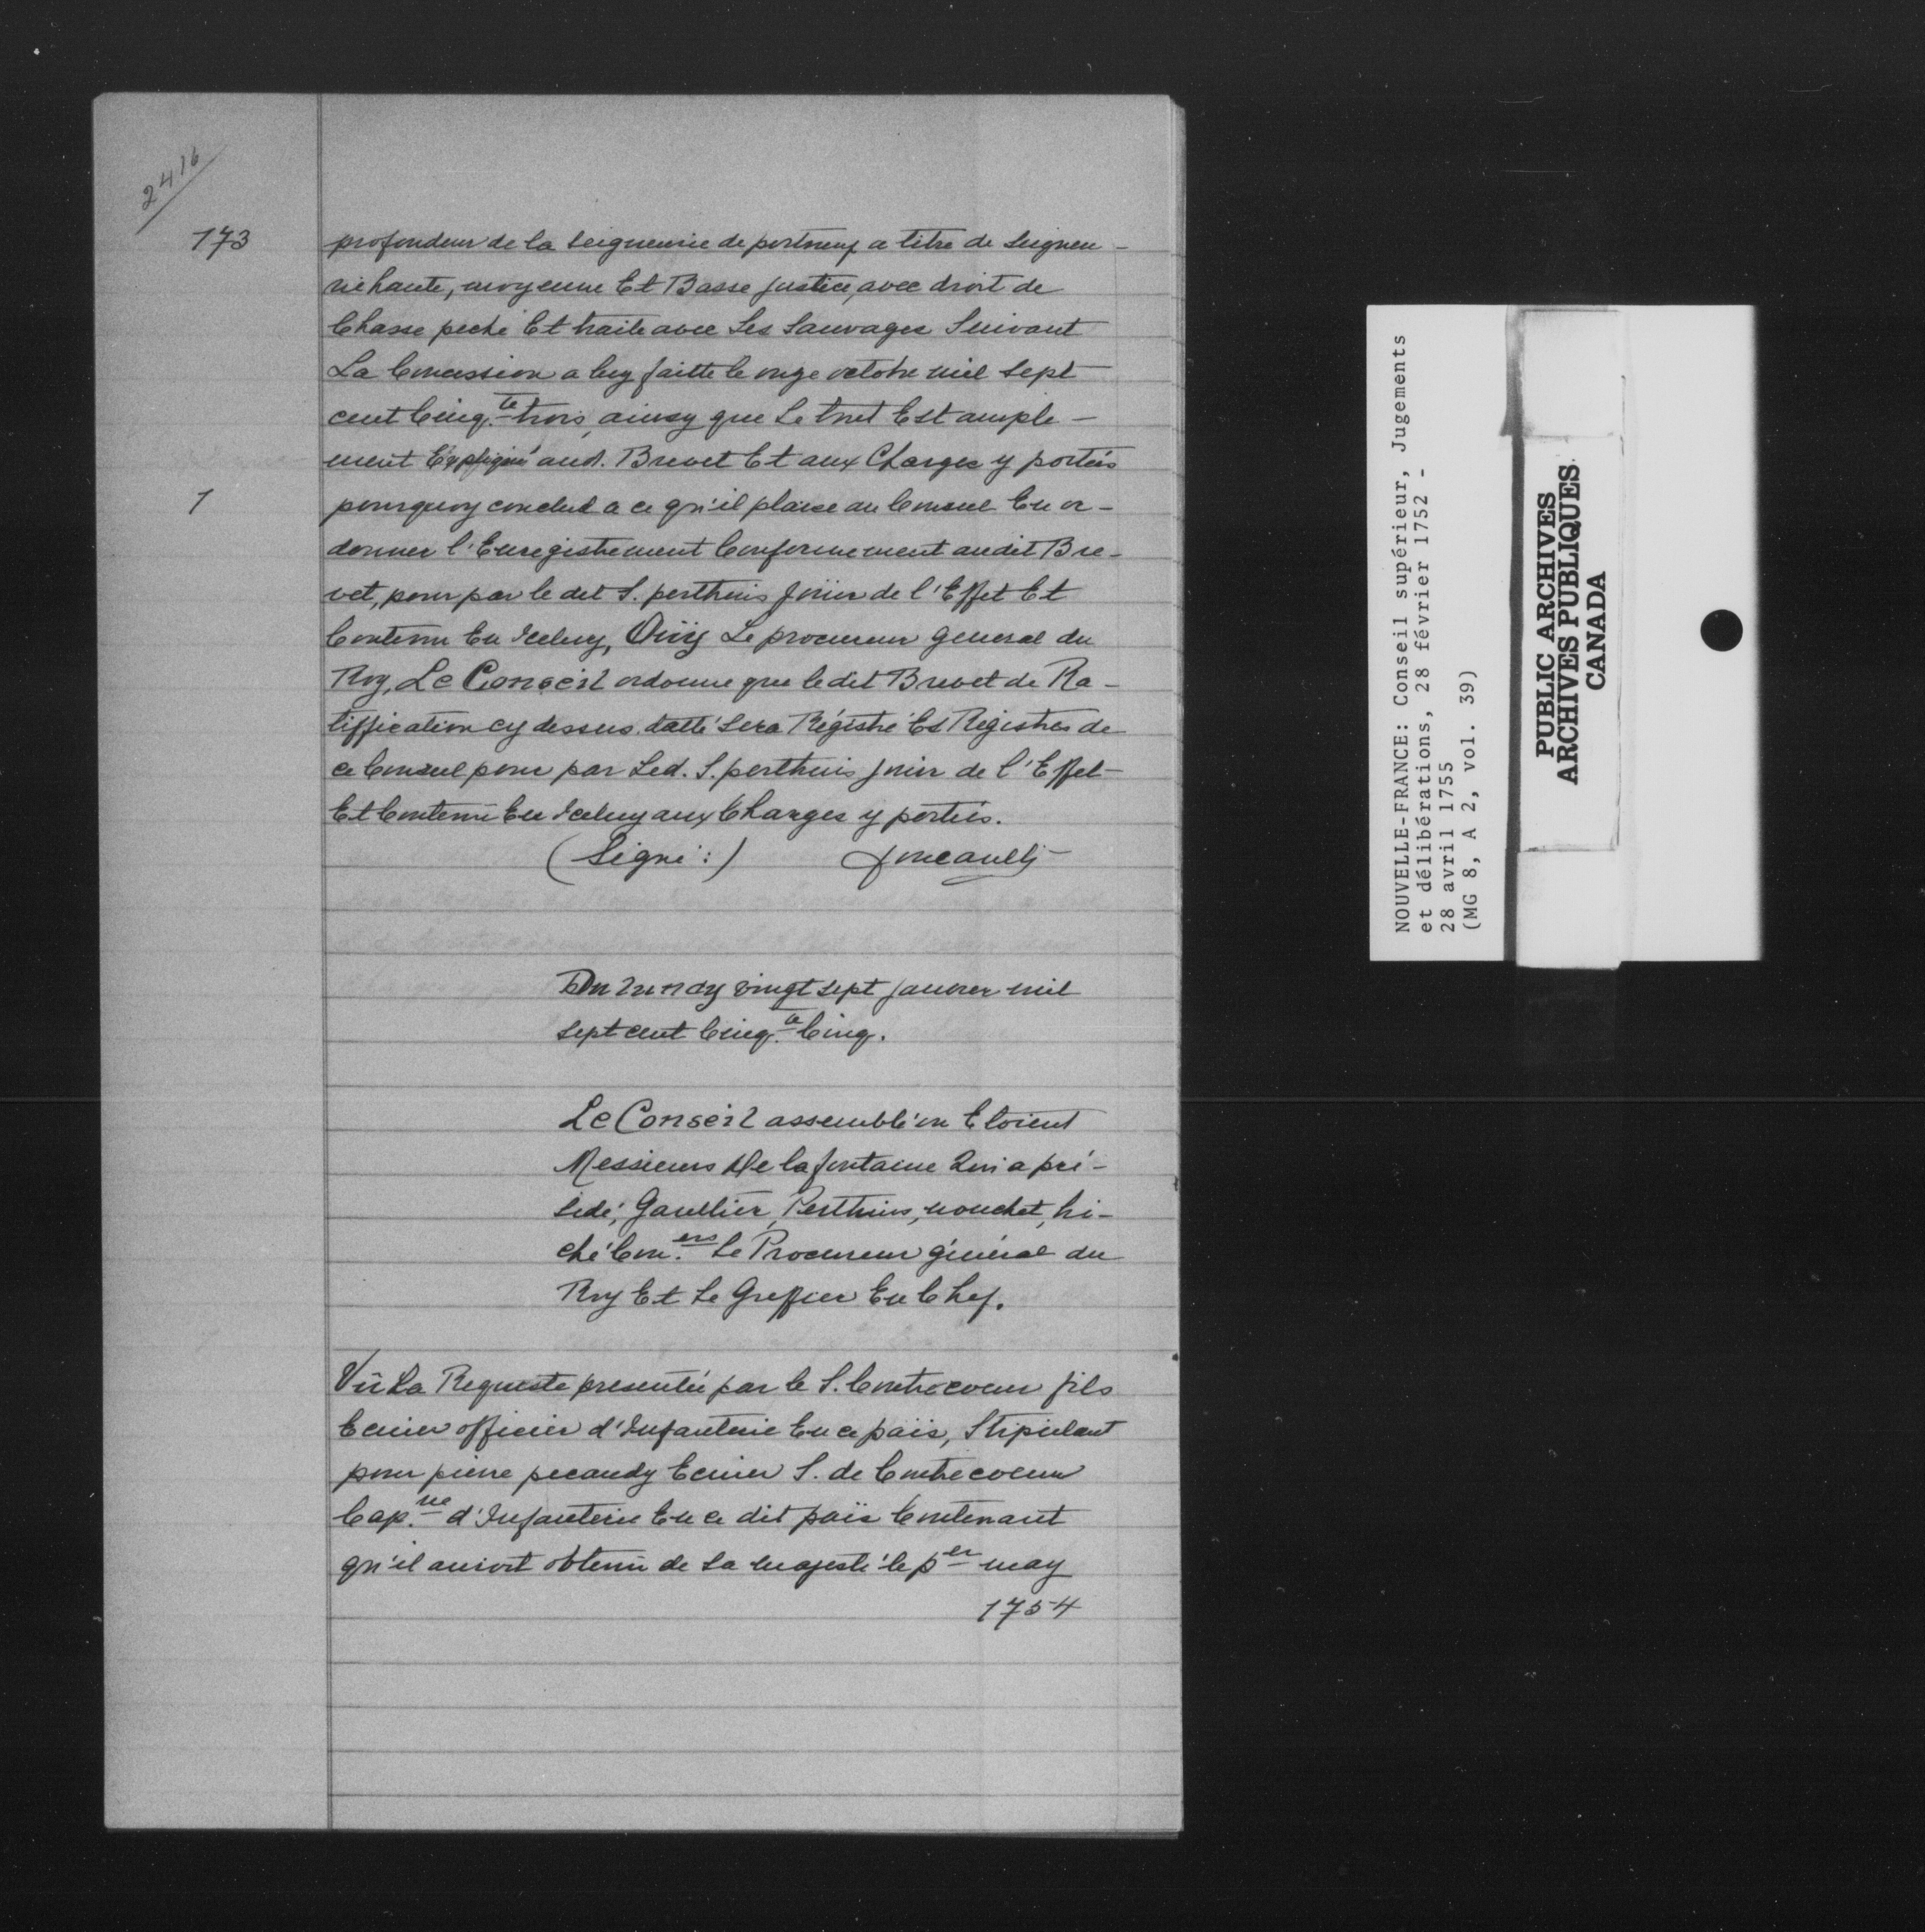 2416
173
profondeur de la seigneurie de portneuf a titre de seigneu-
rie haute, moyenne Et Basse justice, avec droit de
Chasse peche Et traite avec Les Sauvages Suivant
La Concession a luy faitte le onze octobre mil sept
cent Cinq.te trois, ainsy que Le tout Est ample-
ment Expliqué aud. Brevet Et aux Charges y portées
1
pourquoy conclud a ce qu'il plaise au Conseil En or-
donner l'Enregistrement Conformement audit Bre-
vet, pour par le dit S. perthuis joüir de l'Effet Et
Contenu En Iceluy, Oüy Le procureur general du
Roy, Le Conseil ordonne que ledit Brevet de Ra-
tiffication cy dessus datté sera Régistré Es Régistres de
ce Conseil pour par Led. S. perthuis jouir de l'Effet
Et Contenu En Iceluy aux Charges y portées.
(Signé:) foucault
Du Lundy vingt sept janvier mil
sept cent Cinq.te Cinq.
Le Conseil assemblé ou Etoient
Messieurs De lafontaine Qui a pré-
sidé, Gaultier, Perthuis, nouchet, hi-
ché Con.ers Le Procureur général du
Roy Et Le Greffier En Chef.
Vû La Requeste presentée par le S. Contrecoeur fils
Ecuier officier d'Infanterie En ce païs, Stipulant
pour pierre pecaudy Ecuier S. de Contrecoeur
Cap.ne d'Infanterie En ce dit païs Contenant
qu'il auroit obtenu de Sa majesté le p.er may
1754
NOUVELLE-FRANCE: Conseil supérieur, Jugements
et délibérations, 28 février 1752 -
28 avril 1755
(MG 8, A 2, vol. 39)
PUBLIC ARCHIVES
ARCHIVES PUBLIQUES
CANADA